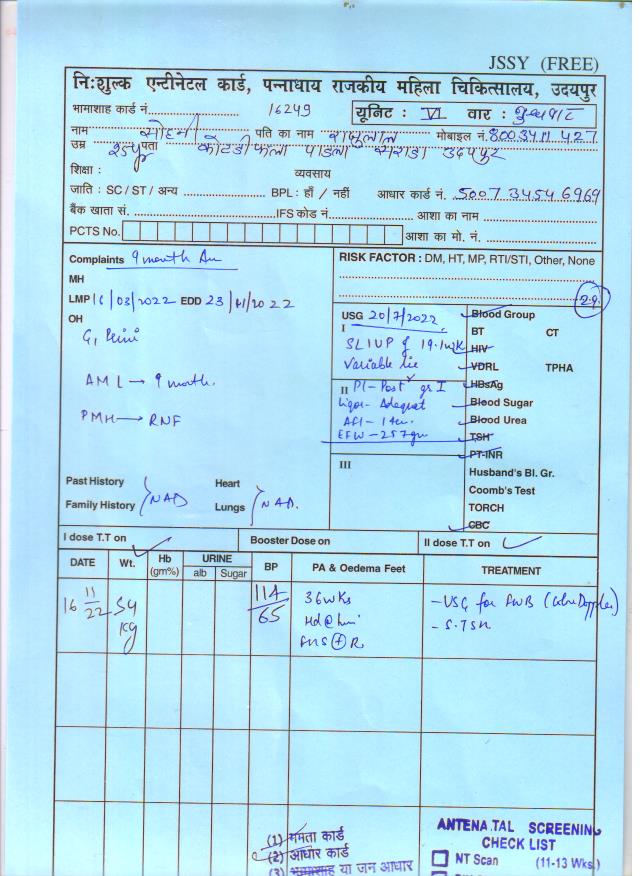 JSSY (FREE)
निःशुल्क एन्टीनेटल कार्ड, पन्नाधाय राजकीय महिला चिकित्सालय, उदयपुर
भामाशाह कार्ड नं. 16249 यूनिट : VI वार :
नाम सोहनी पति का नाम मोबाइल नं. 8003411427
उम्र पता कोटडी फला पाडला सराडा उदयपुर
शिक्षा : व्यवसाय
जाति : SC / ST / अन्य BPL : हाँ / नहीं आधार कार्ड नं. 5007 3454 6969
बैंक खाता सं. IFS कोड नं. आशा का नाम
PCTS No. आशा का मो. नं.
Complaints 9 month
MH
LMP 16/03/2022 EDD 23/11/2022
OH
G1 Primi
AML → 9 month.
PMH → RNF
Past History
Family History NAD
Heart
Lungs NAD.
RISK FACTOR : DM, HT, MP, RTI/STI, Other, None
2.9.
USG 20/7/2022
I
SLIUP of 19.1wk
Variable lie
II Pl- Post gr I
Liqor- Adequat
AFI- 14cm.
EFW-257gm
III
Blood Group
BT CT
HIV
VDRL TPHA
HBsAg
Blood Sugar
Blood Urea
TSH
PT-INR
Husband's Bl. Gr.
Coomb's Test
TORCH
CBC
I dose T.T on Booster Dose on II dose T.T on
DATE Wt. Hb (gm%) URINE alb Sugar BP PA & Oedema Feet TREATMENT
16/11/22 54 kg 114/65 36wks
FHS + R
- USG for FWB (Color Doppler)
- S.TSH
(1) ममता कार्ड
(2) आधार कार्ड
(3) भामाशाह या जन आधार
ANTENATAL SCREENING
CHECK LIST
NT Scan (11-13 Wks.)